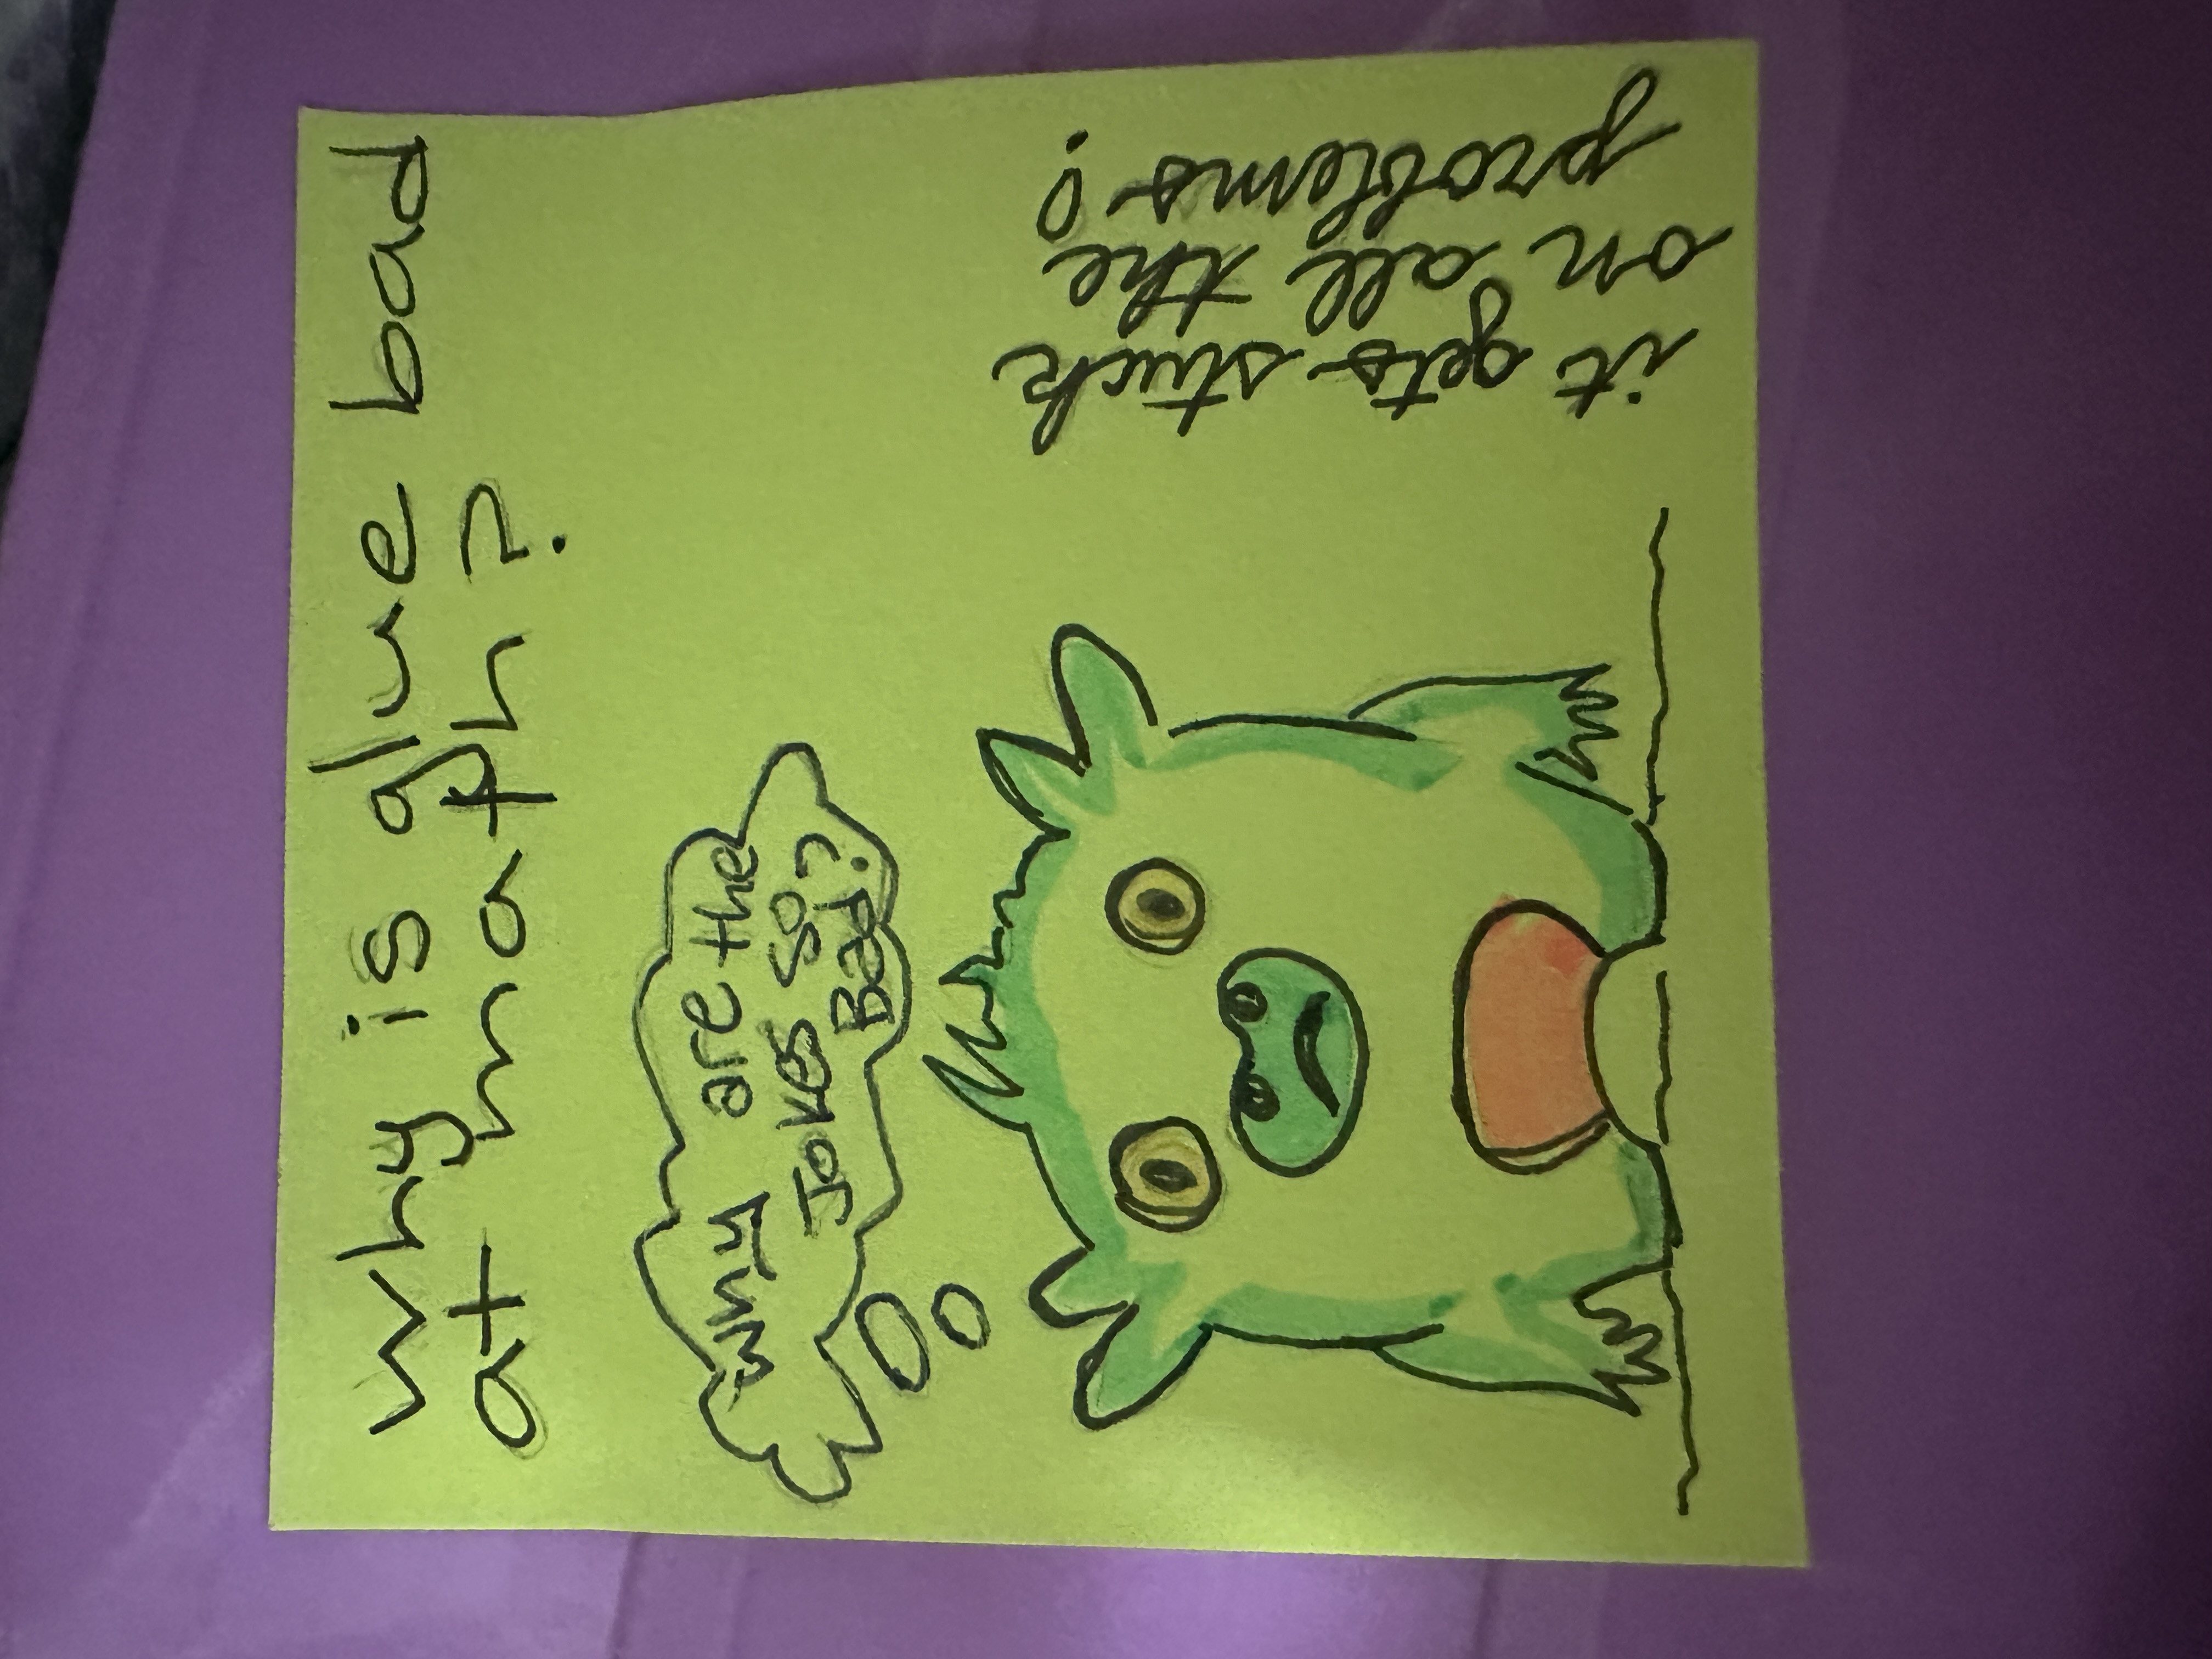 why is glue bad
at math?
Why are the
Jokes so
Bad?
it gets stuck
on all the
problems!